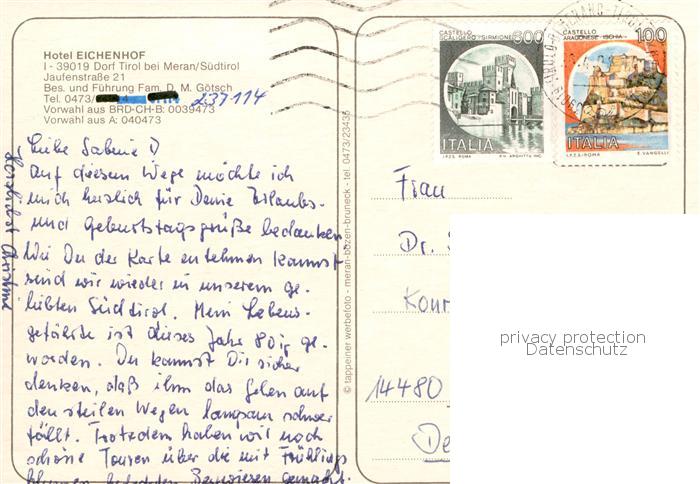 Hotel EICHENHOF
I - 39019 Dorf Tirol bei Meran/Südtirol
Jaufenstraße 21
Bes. und Führung Fam. D. M. Götsch
Tel. 0473/ 237114
Vorwahl aus BRD-CH-B: 0039473
Vorwahl aus A: 040473
Liebe Sabine !)
auf diesem Wege möchte ich
mich herzlich für Deine Urlaubs-
und Geburtstagsgrüße bedanken.
Wie Du der Karte entnehmen kannst
sind wir wieder in unserem ge-
liebten Südtirol. Mein Lebens-
gefährte ist dieses Jahr 80ig ge-
worden. Du kannst Dir sicher
denken, daß ihm das Gehen auf
den steilen Wegen langsam schwer
fällt. Trotzdem haben wir noch
schöne Touren über die mit Frühlings
blumen bedeckten Bergwiesen gemacht.
Herzlichst Christine
© tappeiner werbefoto - meran-bozen-bruneck - tel. 0473/23435
CASTELLO
SCALIGERO "SIRMIONE"
600
ITALIA
I.P.Z.S. ROMA
CASTELLO
ARAGONESE "ISCHIA"
100
ITALIA
I.P.Z.S.-ROMA E. VANGELLI
Frau
Dr.
Konr
14480
De
privacy protection
Datenschutz